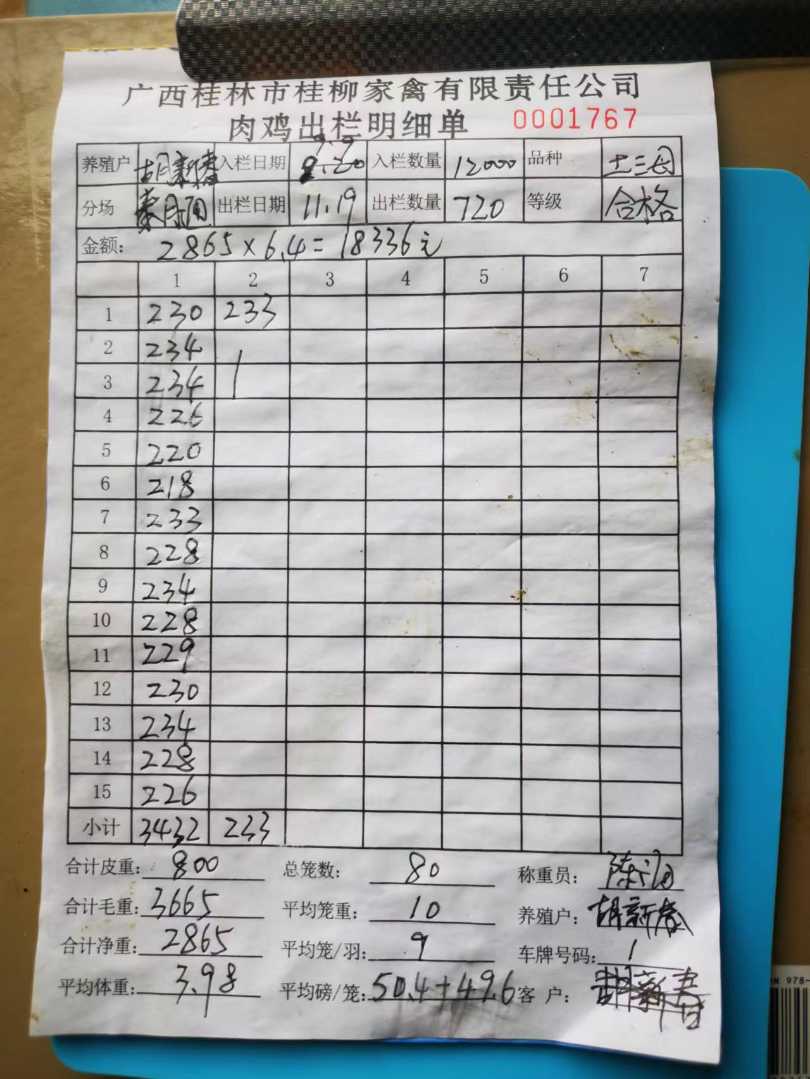 广西桂林市桂柳家禽有限责任公司
肉鸡出栏明细单 0001767
养殖户 胡新春 入栏日期 9.9 入栏数量 12000 品种 土三
分场 出栏日期 11.19 出栏数量 720 等级 合格
金额: 2865×6.4=18336元
1 2 3 4 5 6 7
1 230 233
2 234
3 234
4 226
5 220
6 218
7 233
8 228
9 234
10 228
11 229
12 230
13 234
14 228
15 226
小计 3432 233
合计皮重: 800 总笼数: 80 称重员: 陈
合计毛重: 3665 平均笼重: 10 养殖户: 胡新春
合计净重: 2865 平均笼/羽: 9 车牌号码: 1
平均体重: 3.98 平均磅/笼: 50.4+49.6 客户: 胡新春
978-